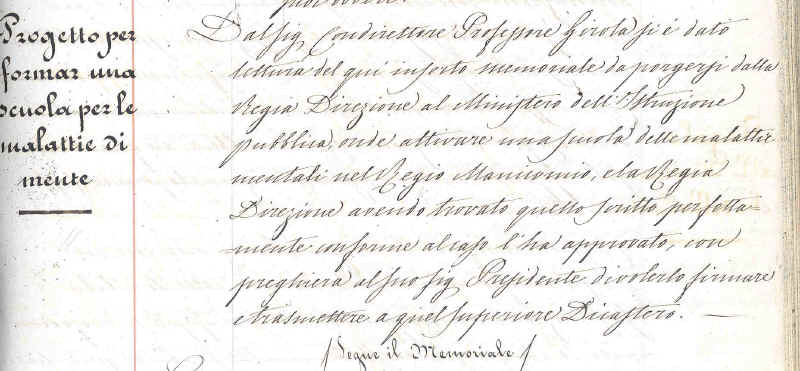 Progetto per
formar una
scuola per le
malattie di
mente
Dal Sig Condirettore Professore Girola si è dato
lettura del qui inserto memoriale da porgersi dalla
Regia Direzione al Ministero dell'Istruzione
pubblica, onde attivare una scuola delle malattie
mentali nel Regio Manicomio, e la Regia
Direzione avendo trovato quello scritto perfetta=
=mente conforme al caso l'ha approvato, con
preghiera al suo sig Presidente di volerlo firmare
e trasmettere a quel superiore Dicastero. —
/ Segue il Memoriale /